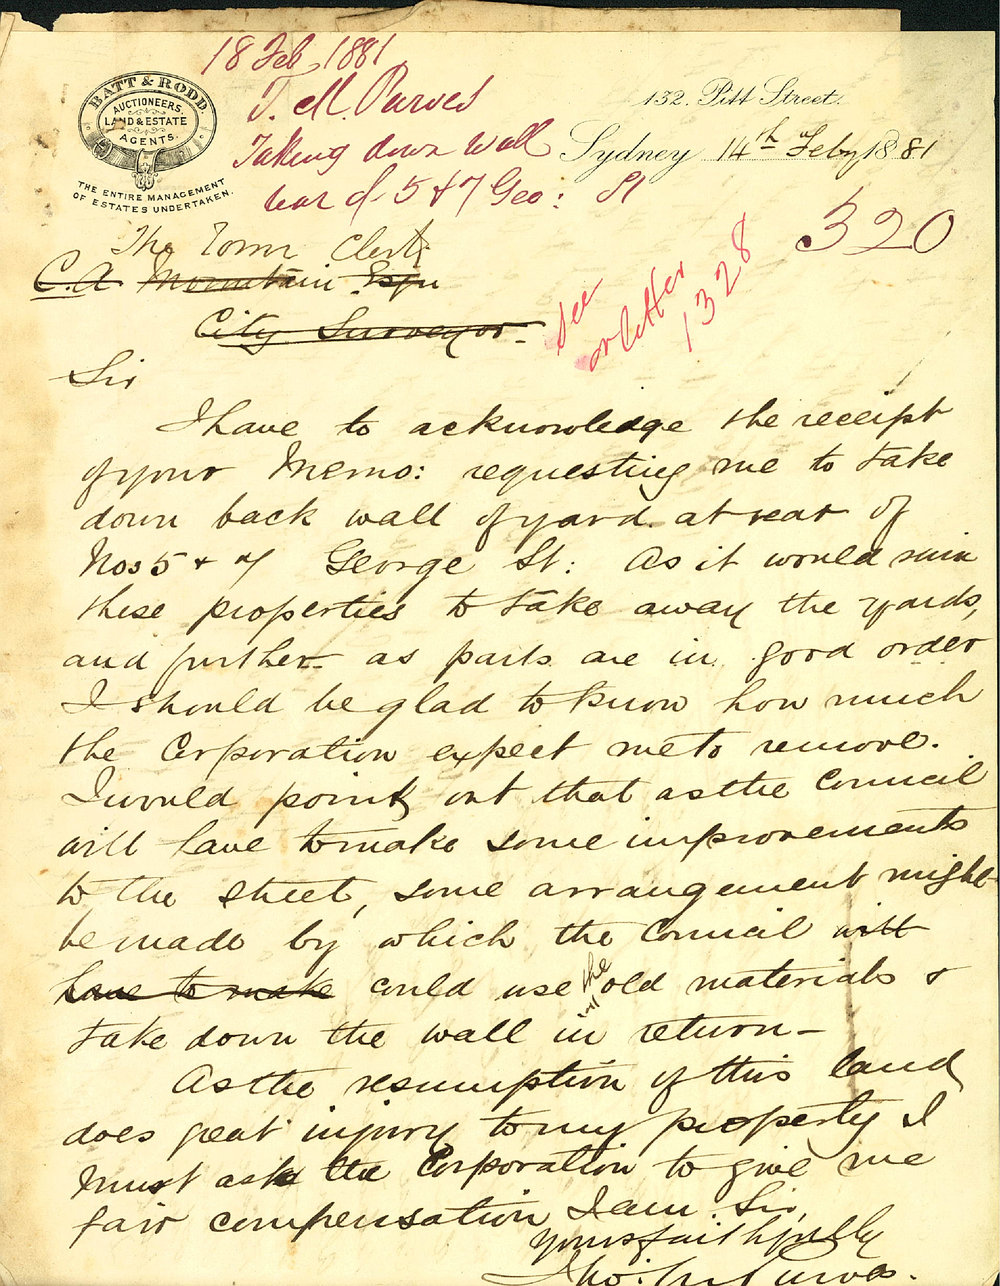 18 Feb 1881
T. M. Purves
Taking down wall
rear of 5 & 7 Geo: St
BATT & RODD
AUCTIONEERS,
LAND & ESTATE
AGENTS.
THE ENTIRE MANAGEMENT
OF ESTATES UNDERTAKEN.
132. Pitt Street.
Sydney 14th Feby 1881
320
see
or letter
1328
The Town Clerk
C.A Mountain Esqu
City Surveyor
Sir
I have to acknowledge the receipt
of your Memo: requesting me to take
down back wall of yard at rear of
Nos 5 & 7 George St: As it would ruin
these properties to take away the yards,
and further as parts are in good order
I should be glad to know how much
the Corporation expect me to remove.
I would point out that as the Council
will have to make some improvements
to the street, some arrangement might
be made by which the Council will
have to make could use all the old materials &
take down the wall in return –
As the resumption of this land
does great injury to my property I
must ask the Corporation to give me
fair compensation I am Sir,
yours faithfully
Purves.